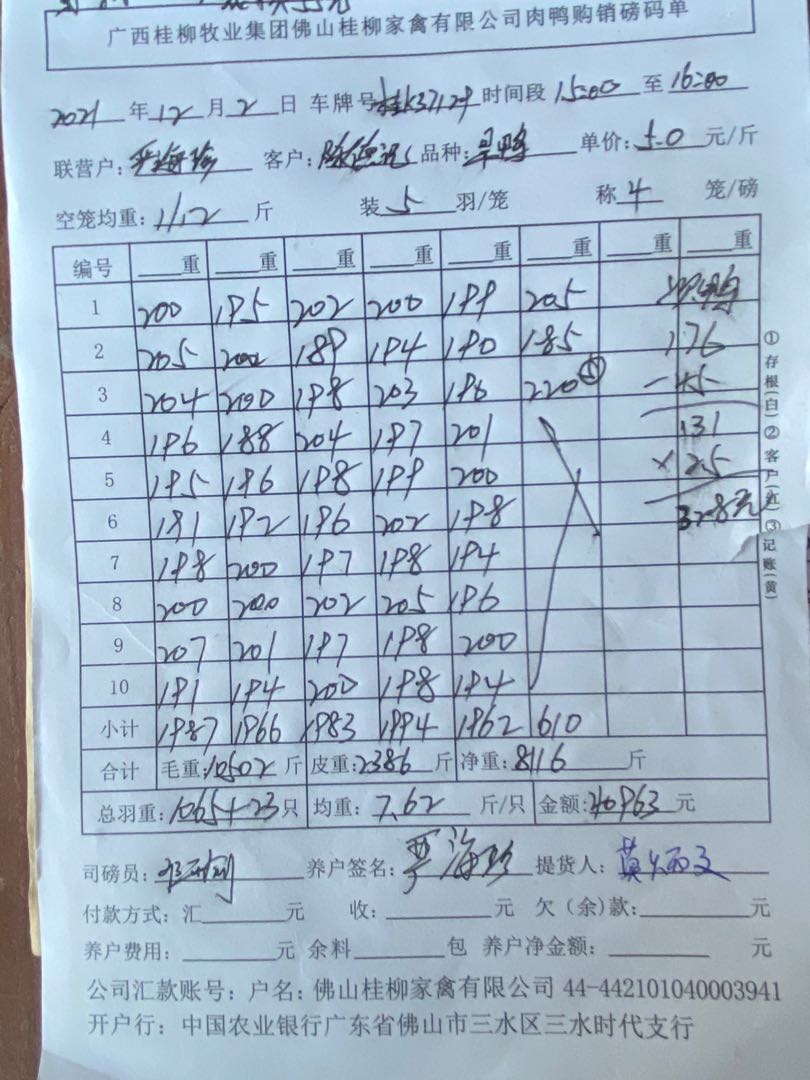 广西桂柳牧业集团佛山桂柳家禽有限公司肉鸭购销磅码单
2021年12月2日 车牌号 时间段15:00至16:00
联营户: 客户: 品种: 单价:5.0元/斤
空笼均重:11.12斤 装5羽/笼 称4笼/磅
编号 重 重 重 重 重 重 重 重
1 200 195 202 200 199 205
2 205 200 189 194 190 185 176
3 204 200 198 203 196 220⑤ -45
4 196 188 204 197 201 131
5 195 196 198 199 200 ×2.5
6 191 192 196 202 198 328元
7 198 200 197 198 194
8 200 200 202 205 196
9 207 201 197 198 200
10 191 194 200 198 194
小计 1987 1966 1983 1994 1962 610
合计 毛重:10502斤 皮重:2386斤 净重:8116斤
总羽重:1065+23只 均重:7.62斤/只 金额:40963元
司磅员: 养户签名:严海珍 提货人:
付款方式:汇 元 收: 元 欠(余)款: 元
养户费用: 元 余料 包 养户净金额: 元
公司汇款账号:户名:佛山桂柳家禽有限公司 44-442101040003941
开户行:中国农业银行广东省佛山市三水区三水时代支行
①存根(白)②客户(红)③记账(黄)